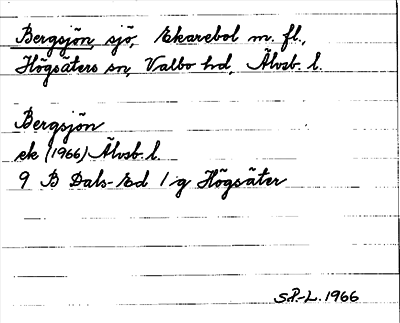 Bergsjön, sjö, Ekarebol m. fl.,
Högsäters sn, Valbo hd, Älvsb. l.
Bergsjön
ek (1966) Älvsb. l.
9 B Dals-Ed 1 g Högsäter
S.P.-L. 1966